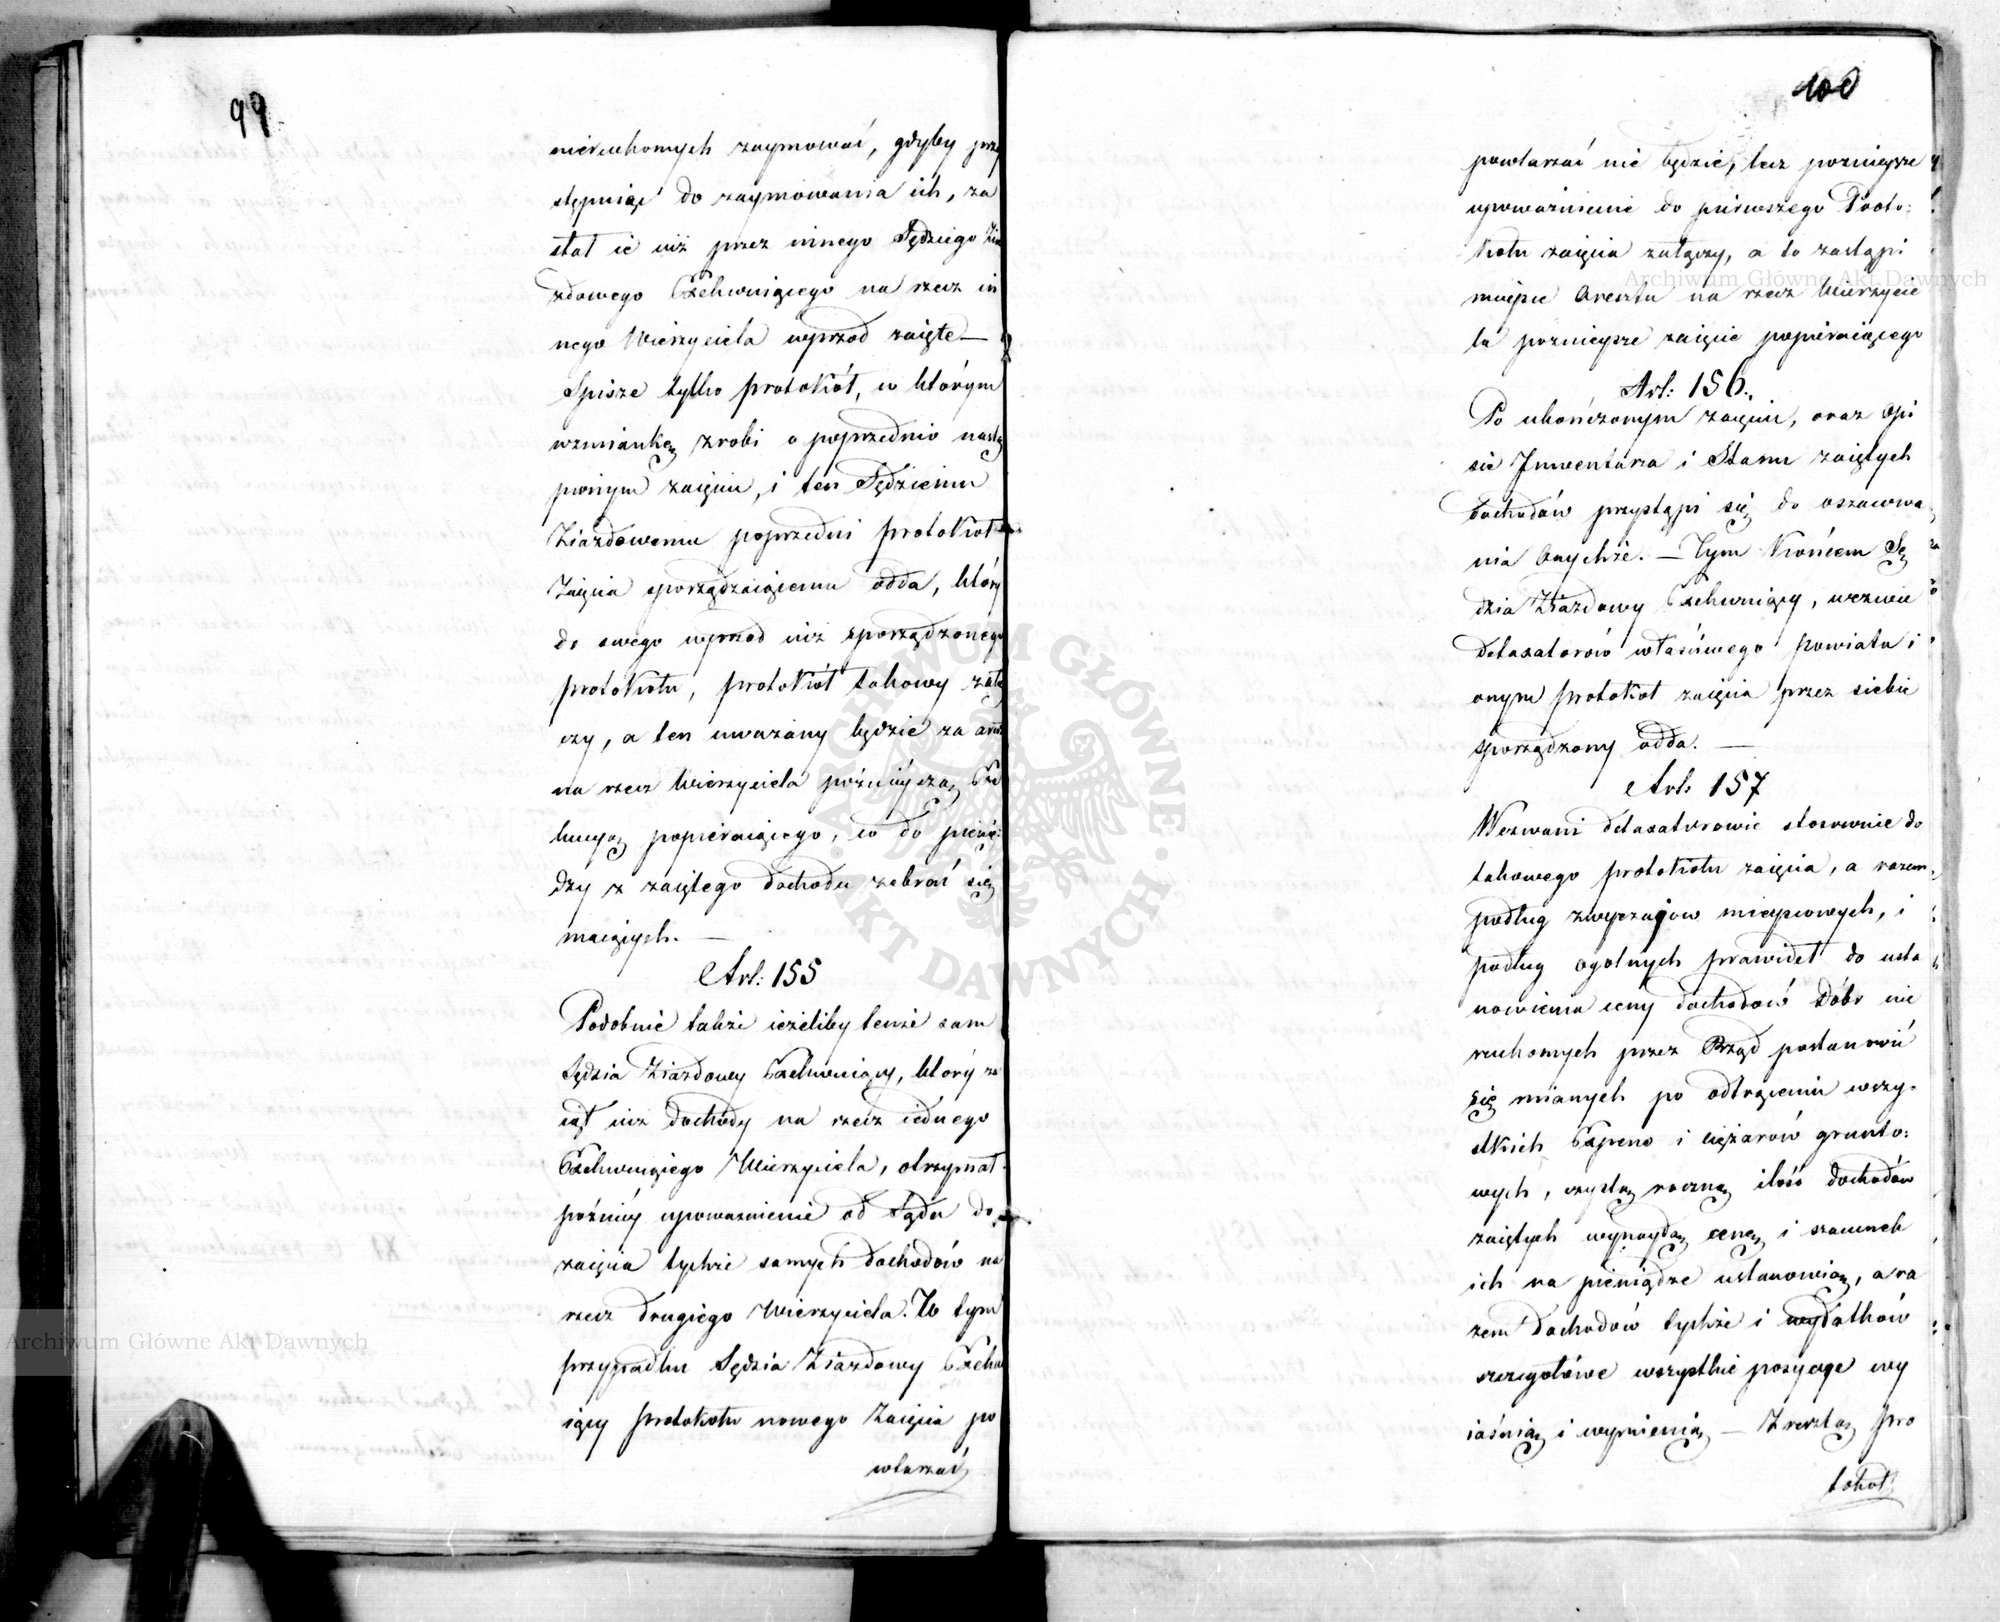 99
nieruchomych zaymować, gdyby przy
stępuiąc do zaymowania ich, za
stał ie iuż przez innego Sędziego Zia
zdowego Exekwuiącego na rzecz in
nego Wierzyciela wprzod zaięte —
Spisze tylko protokół, w którym
wzmiankę zrobi o poprzednio nastą
pionym zaięciu, i ten Sędziemu
Ziazdowemu poprzedni protokół
Zaięcia sporządzaiącemu odda, który
do owego wprzod iuż sporządzonego
protokołu, protokół takowy załą
czy, a ten uważany będzie za areszt
na rzecz Wierzyciela poźnieyszą Exe
kucyą popieraiącego, co do pienię:
dzy z zaiętego dochodu zebrać się
maiących. —
Art: 155
Podobnie także ieżeliby tenże sam
Sędzia Ziazdowy Exekwuiący, który za
iął iuż dochody na rzecz iednego
Exekwuiącego Wierzyciela, otrzymał
poźniéy upoważnienie od Sądu do
zaięcia tychże samych dochodów na
rzecz drugiego Wierzyciela. W tym
przypadku Sędzia Ziazdowy Exekwu
iący protokołu nowego Zaięcia po
wtarzać
100
powtarzać nie będzie, lecz poznieysze
upoważnienie do pierwszego Proto:
kołu zaięcia załączy, a to zastąpi
mieysce Aresztu na rzecz Wierzycie
la poznieysze zaięcie popieraiącego
Art: 156.
Po ukończonym zaięciu, oraz Opi
sie Inwentarza i Stanu zaiętych
dochodów przystąpi się do oszacowa
nia Onychże. — Tym Końcem Sę
dzia Ziazdowy Exekwuiący, wezwie
detaxatorów właściwego Powiatu i
onym protokół zaięcia przez siebie
sporządzony odda. —
Art: 157
Wezwani detaxatorowie stosownie do
takowego protokołu zaięcia, a razem
podług zwyczajow mieyscowych, i
podług ogolnych prawideł do usta
nowienia ceny dochodów Dóbr nie
ruchomych przez Rząd postanowić
się mianych po odtrąceniu wszy-
stkich Expens i ciężarów grunto:
wych, czystą roczną ilość dochodów
zaiętych wynaydą cenę i szacunek
ich na pieniądze ustanowią, a ra
zem dochodów tychże i wydatków
szczegołówe wszystkie pozycye wy
iaśnią i wymienią — Zresztą pro
tokoł
Archiwum Główne Akt Dawnych
Archiwum Główne Akt Dawnych
ARCHIWUM GŁÓWNE · AKT DAWNYCH ·